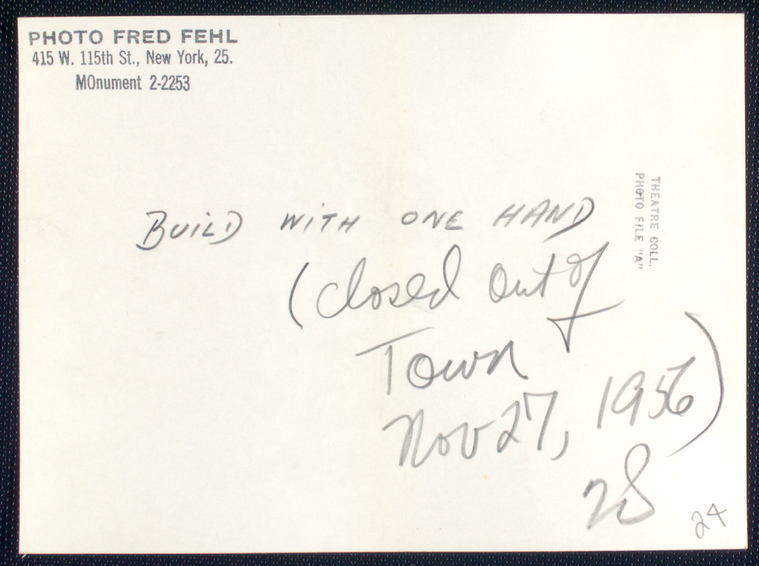 PHOTO FRED FEHL
415 W. 115th St., New York, 25.
MOnument 2-2253
THEATRE COLL.
PHOTO FILE "A"
BUILD WITH ONE HAND
(closed out of
Town
Nov 27, 1956)
24